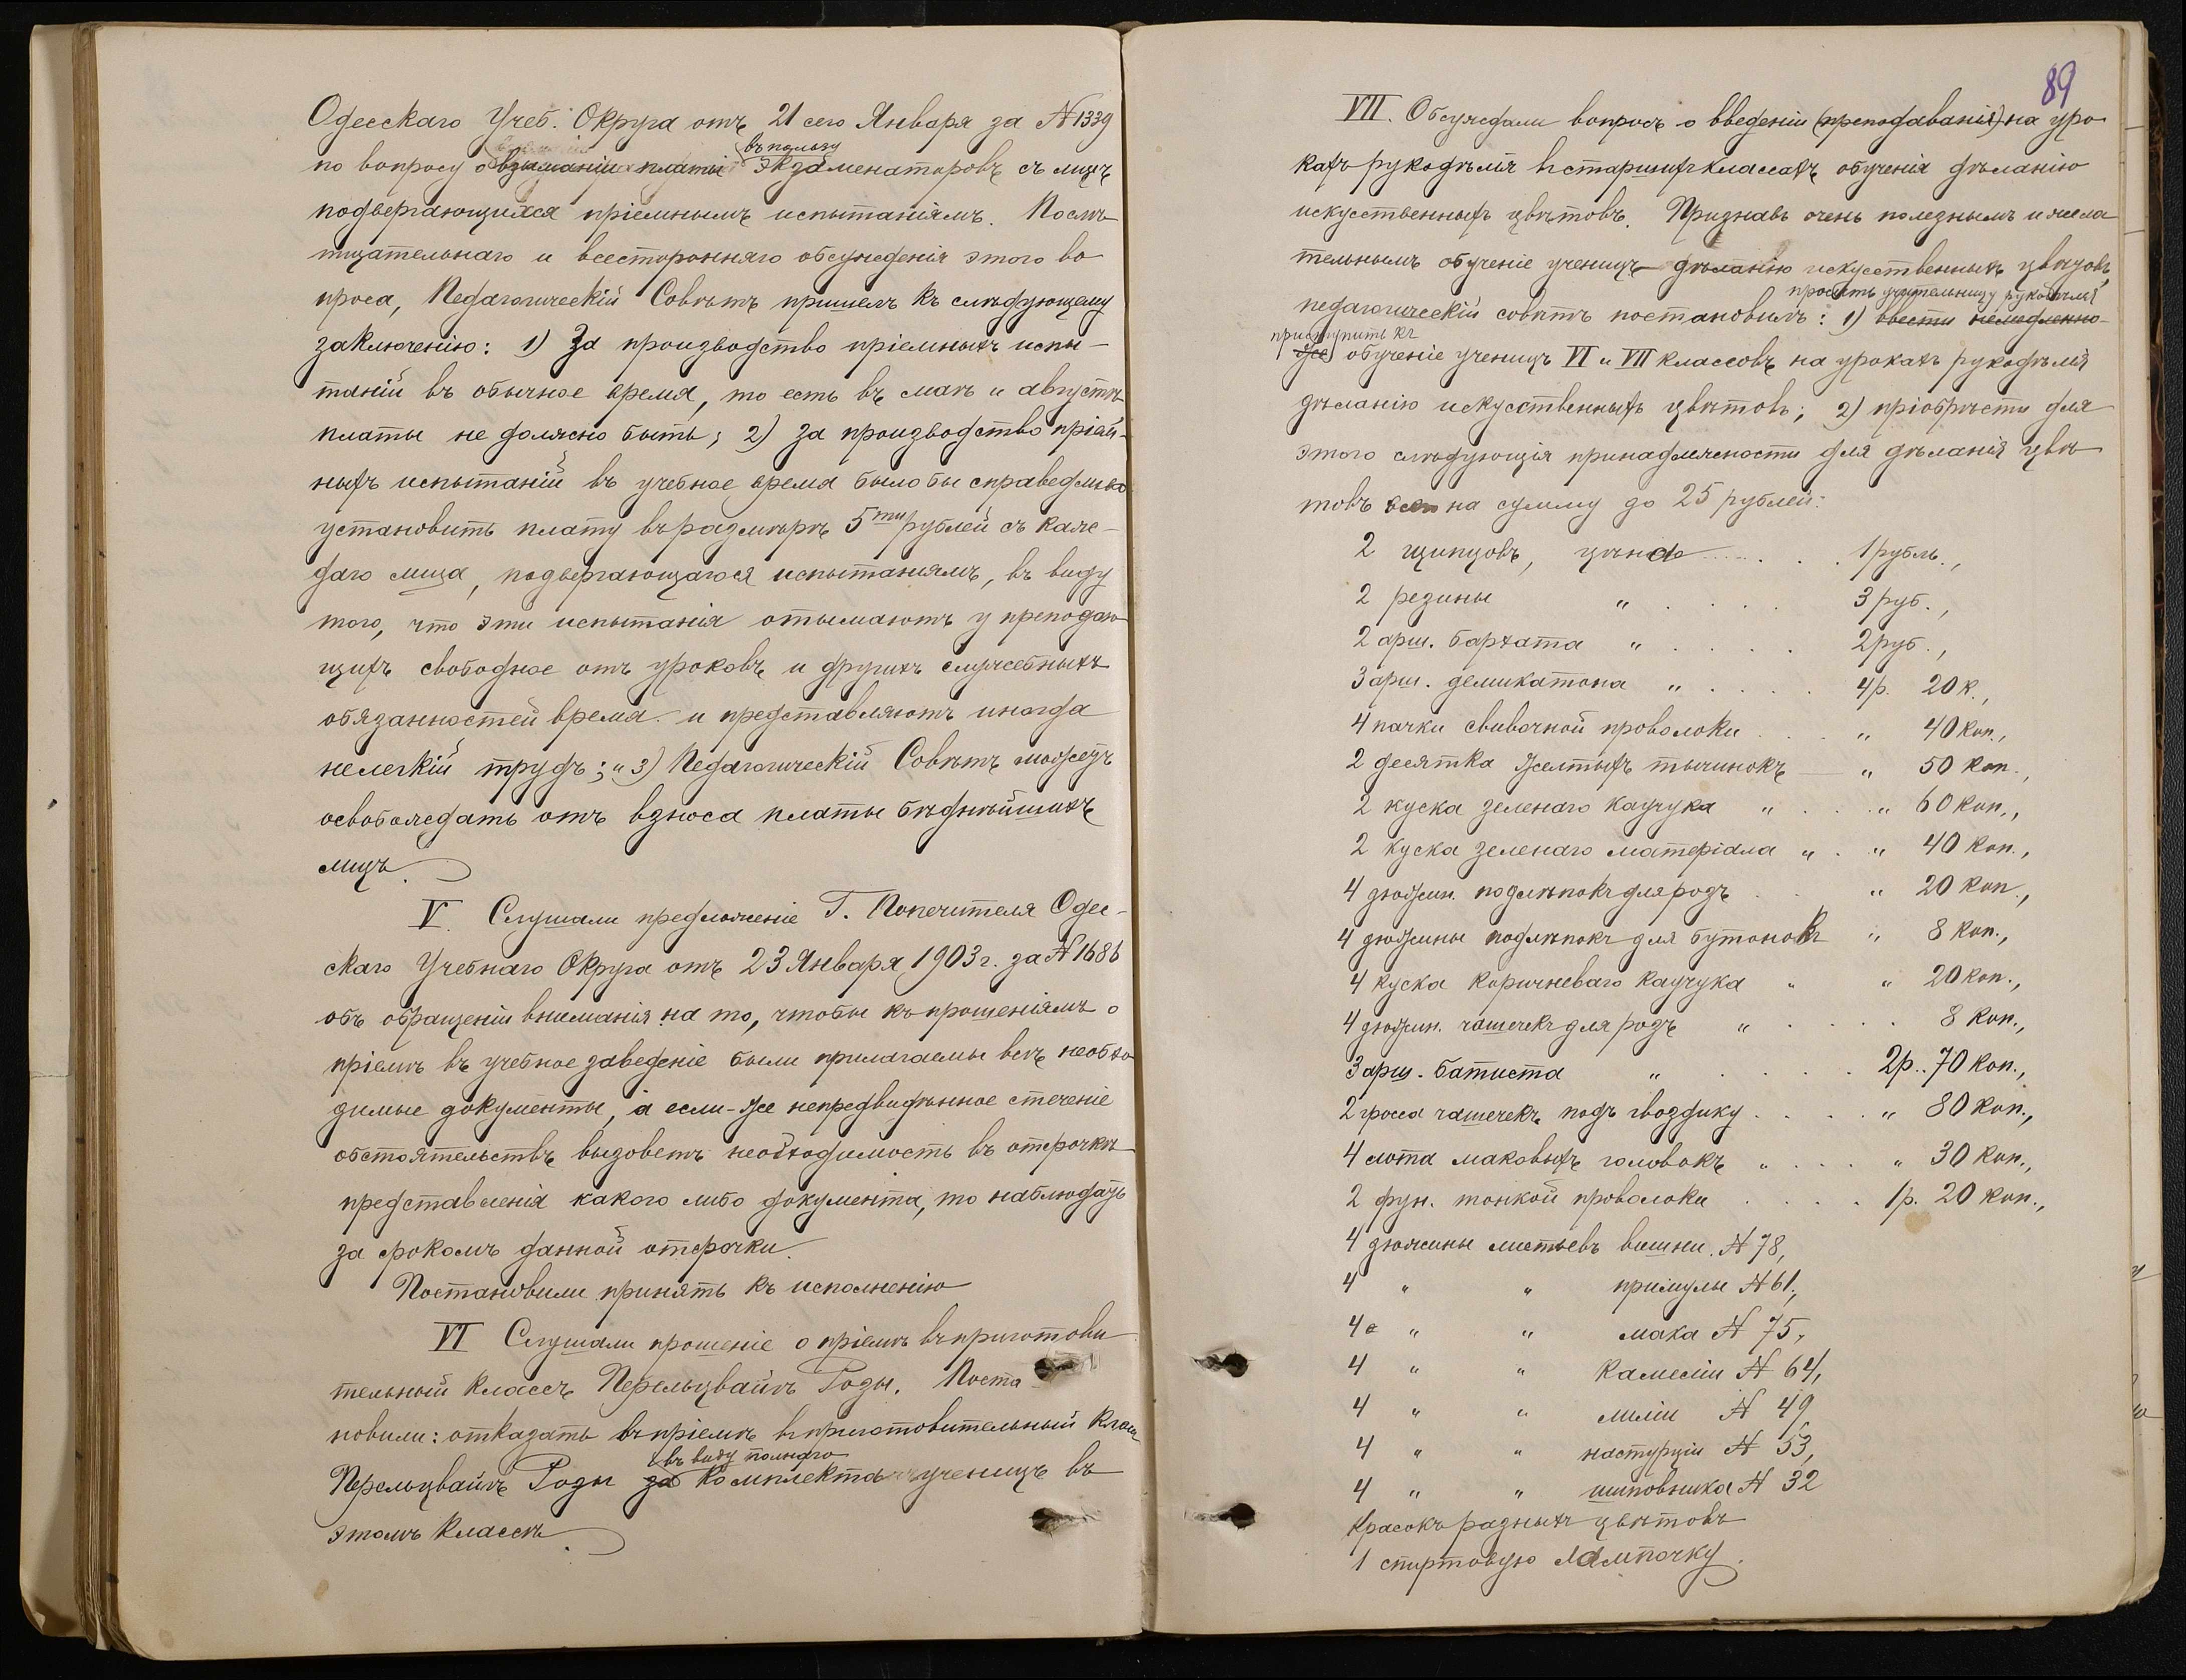 Одесскаго Учеб. Округа отъ 21 сего Января за № 1339
въ пользу
по вопросу о взиманіи платы экзаменаторовъ съ лицъ
подвергающихся пріемнымъ испытаніямъ. Послѣ
тщательнаго и всесторонняго обсужденія этого во
проса, Педагогическій Совѣтъ пришелъ къ слѣдующему
заключенію: 1) За производство пріемныхъ испы-
таній въ обычное время, то есть въ маѣ и августѣ
платы не должно быть; 2) за производство пріем-
ныхъ испытаній въ учебное время было бы справедливо
установить плату въ размѣрѣ 5ти рублей съ каж-
даго лица, подвергающагося испытаніямъ, въ виду
того, что эти испытанія отымаютъ у преподаю
щихъ свободное отъ уроковъ и другихъ служебныхъ
обязанностей время и представляютъ иногда
нелегкій трудъ; и 3) Педагогическій Совѣтъ можетъ
освобождать отъ взноса платы бѣднѣйшихъ
лицъ.
V. Слушали предложеніе Г. Попечителя Одес-
скаго Учебнаго Округа отъ 23 Января 1903 г. за № 1686
объ обращеніи вниманія на то, чтобы къ прошеніямъ о
пріемѣ въ учебное заведеніе были прилагаемы всѣ необхо
димые документы, а если-же непредвидѣнное стеченіе
обстоятельствъ вызоветъ необходимость въ отсрочкѣ
представленія какого либо документа, то наблюдать
за срокомъ данной отсрочки.
Постановили принять къ исполненію
VI Слушали прошеніе о пріемѣ въ приготови
тельный классъ Перельцвайгъ Розы. Поста
новили: отказать въ пріемѣ въ приготовительный класс
въ виду полнаго
Перельцвайгъ Розы за комплекта ученицъ въ
этомъ классѣ.
89
VII. Обсуждали вопросъ о введеніи (преподаванія) на уро
кахъ рукодѣлія въ старшихъ классахъ обученія дѣланію
искусственныхъ цвѣтовъ. Признавъ очень полезнымъ и жела
тельнымъ обученіе ученицъ дѣланію искусственныхъ цвѣтовъ,
просить учительницу рукодѣлія
педагогическій совѣтъ постановилъ: 1) ввести немедленно
приступить къ
же обученіе ученицъ VI и VII классовъ на урокахъ рукодѣлія
дѣланію искусственныхъ цвѣтовъ; 2) пріобрѣсти для
этого слѣдующія принадлежности для дѣланія цвѣ
товъ на сумму до 25 рублей:
2 щипцовъ, цѣна . . . 1 рубль.,
2 резины " . . . . 3 руб.,
2 арш. бархата " . . . . 2 руб.,
3 арш. деликатона " . . . . 4 р. 20 к.,
4 пачки свивочной проволоки . . . " 40 коп.,
2 десятка желтыхъ тычинокъ " 50 коп.,
2 куска зеленаго каучука " . . . " 60 коп.,
2 куска зеленаго матеріала " . " 40 коп.,
4 дюжин. подлѣпокъ для розъ . . " 20 коп.,
4 дюжины подлѣпокъ для бутоновъ " 8 коп.,
4 куска коричневаго каучука " " 20 коп.,
4 дюжин. чашечекъ для розъ " . . . . 8 коп.,
3 арш. батиста " . . . . 2 р. 70 коп.,
2 гросса чашечекъ подъ гвоздику . . . . " 80 коп.,
4 лота маковыхъ головокъ " . . . " 30 коп.,
2 фун. тонкой проволоки . . . . 1 р. 20 коп.,
4 дюжины листьевъ вишни. № 78,
4 " " примулы № 61,
4 " " мака № 75,
4 " " камеліи № 64,
4 " " лиліи № 49
4 " " настурціи № 53,
4 " " шиповника № 32
Красокъ разныхъ цвѣтовъ
1 спиртовую лампочку.